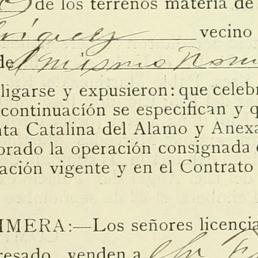 de los terrenos materia de
vecino
de mismo nom
ligarse y expusieron: que celebr
continuación se especifican y q
nta Catalina del Alamo y Anexa
orado la operación consignada e
ación vigente y en el Contrato
IMERA:—Los señores licencia
resado, venden a